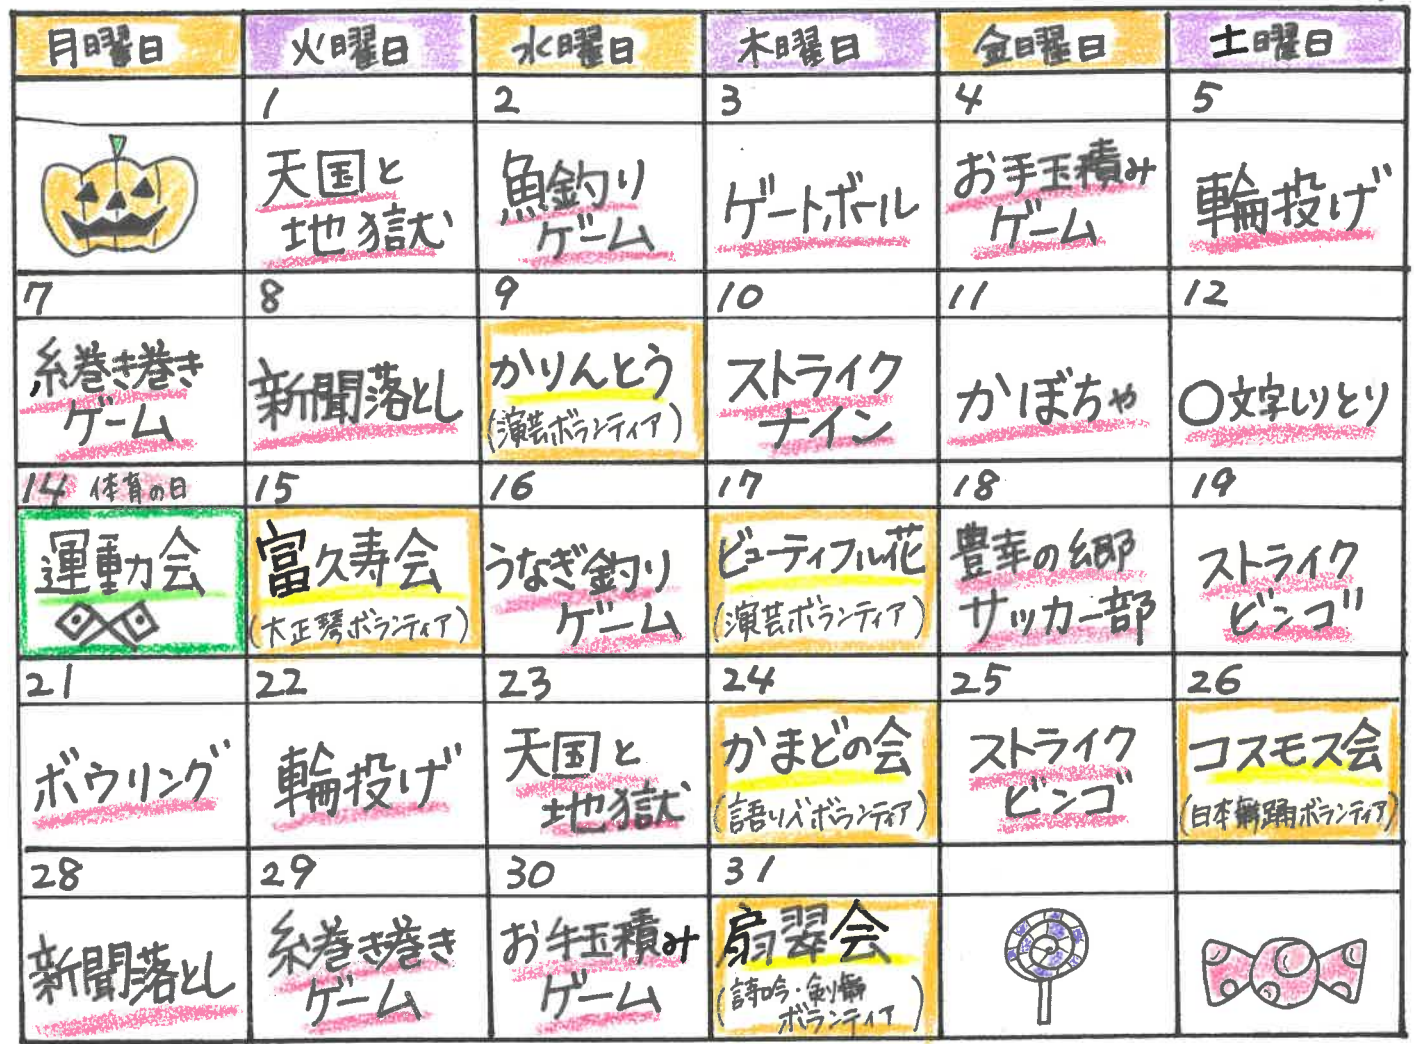 月曜日 火曜日 水曜日 木曜日 金曜日 土曜日
1 2 3 4 5
天国と
地獄
魚釣り
ゲーム
ゲートボール
お手玉積み
ゲーム
輪投げ
7 8 9 10 11 12
糸巻き巻き
ゲーム
新聞落とし
かりんとう
(演芸ボランティア)
ストライク
ナイン
かぼちゃ
〇文字しりとり
14 体育の日 15 16 17 18 19
運動会
富久寿会
(大正琴ボランティア)
うなぎ釣り
ゲーム
ビューティフル花
(演芸ボランティア)
豊幸の郷
サッカー部
ストライク
ビンゴ
21 22 23 24 25 26
ボウリング
輪投げ
天国と
地獄
かまどの会
(語りべボランティア)
ストライク
ビンゴ
コスモス会
(日本舞踊ボランティア)
28 29 30 31
新聞落とし
糸巻き巻き
ゲーム
お手玉積み
ゲーム
扇翠会
(詩吟・剣舞
ボランティア)